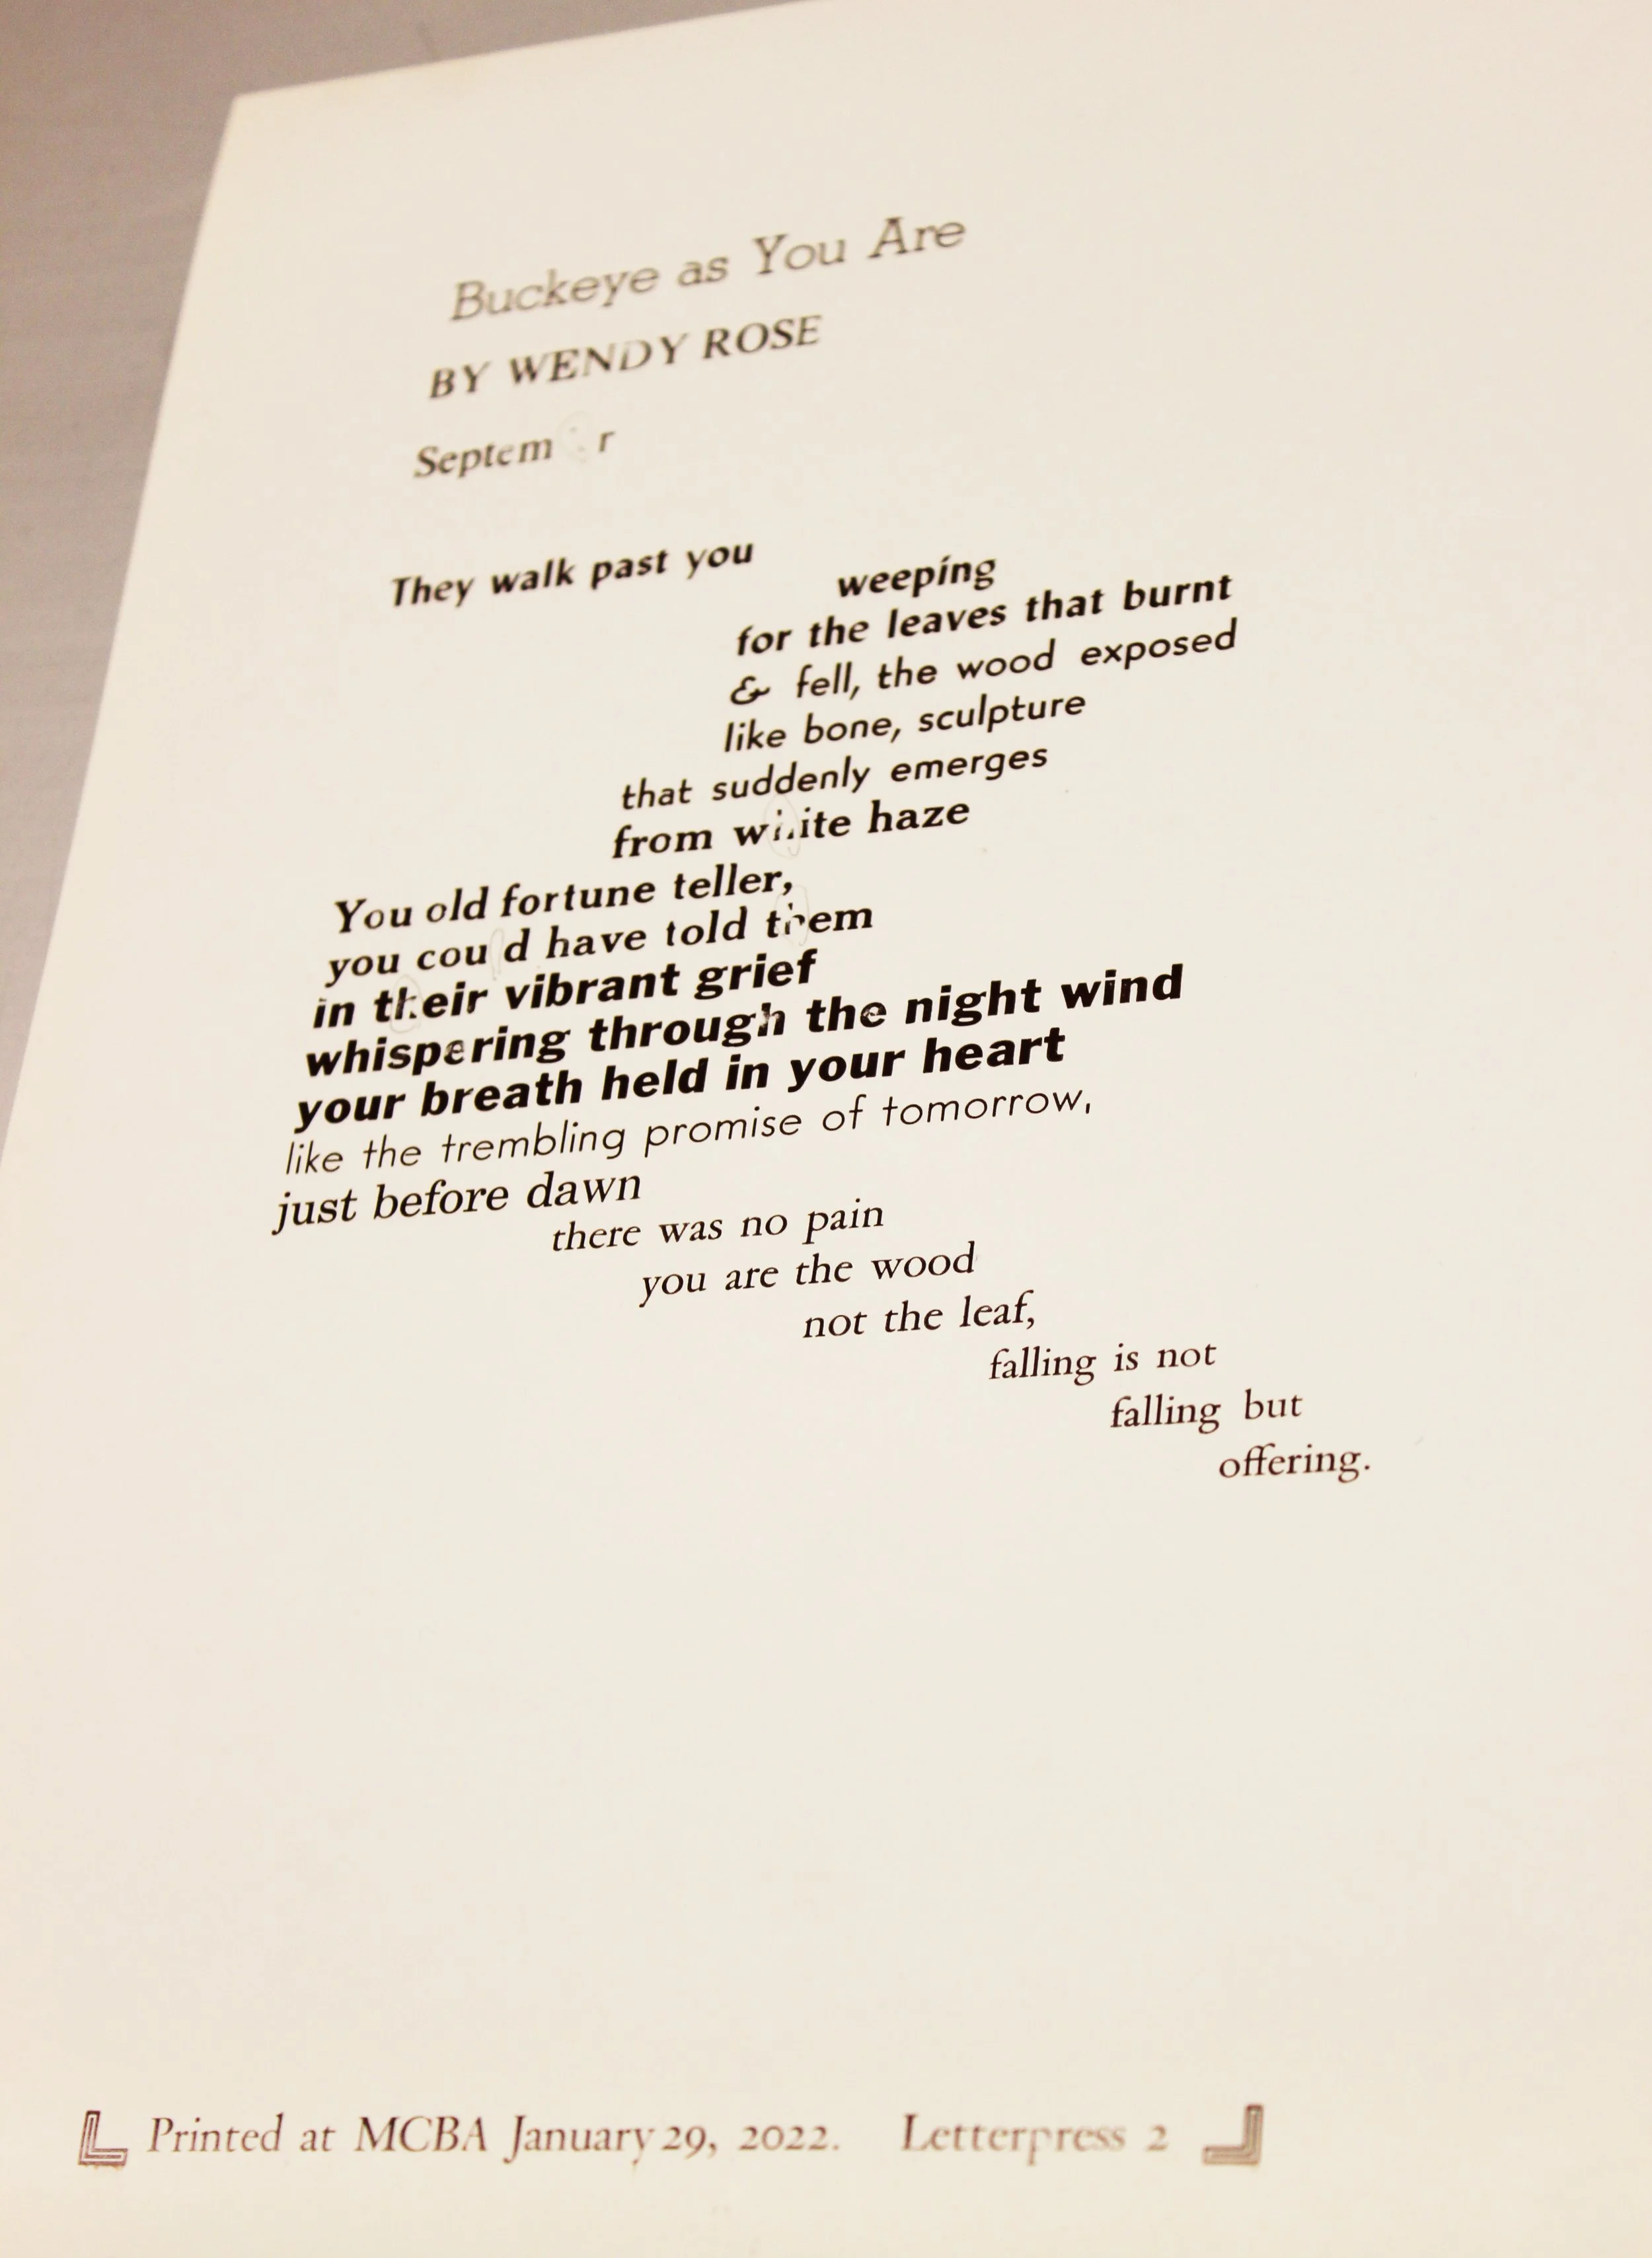 Buckeye as You Are
BY WENDY ROSE
Septem r
They walk past you
weeping
for the leaves that burnt
& fell, the wood exposed
like bone, sculpture
that suddenly emerges
from white haze
You old fortune teller,
you cou d have told them
in their vibrant grief
whispering through the night wind
your breath held in your heart
like the trembling promise of tomorrow,
just before dawn
there was no pain
you are the wood
not the leaf,
falling is not
falling but
offering.
Printed at MCBA January 29, 2022. Letterpress 2